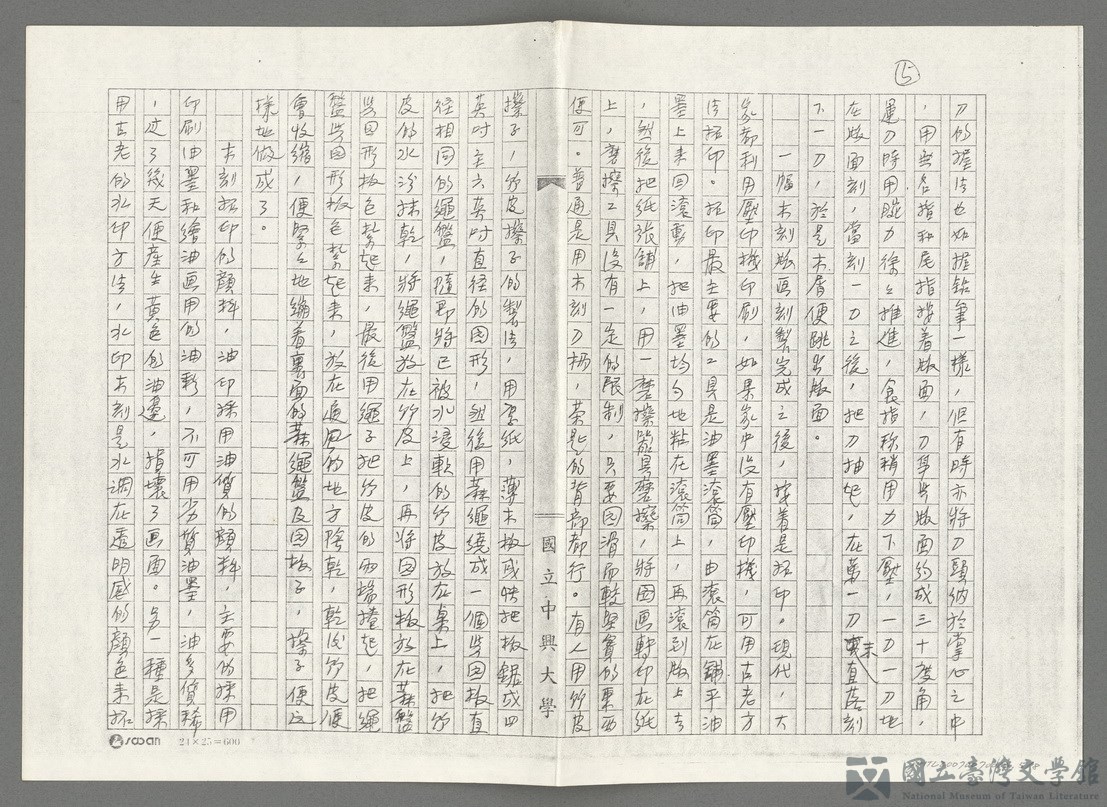 ⑮
刀的握法也如握鉛筆一樣，但有時亦將刀頭納於掌心之中
，用無名指和尾指按着版面，刀與版面約成三十度角，
運刀時用腕力徐々推進，食指稍稍用力下壓，一刀一刀地
在版面刻，當刻一刀之後，把刀抽起，在第一刀末直落刻
下一刀，於是木屑便跳出版面。
一幅木刻版画刻製完成之後，接着是拓印。現代，大
家都利用壓印機印刷，如果家中沒有壓印機，可用古老方
法拓印。拓印最主要的工具是油墨滚筒，由滚筒在鋪平油
墨上来回滚動，把油墨均匀地粘在滚筒上，再滚到版上去
，然後把紙張鋪上，用一磨擦器具磨擦，將图画轉印在紙
上，磨擦工具沒有一定的限制，只要圆滑而較堅實的東西
便可。普通是用木刻刀柄，茶匙的背部都行。有人用竹皮
擦子，竹皮擦子的製法，用厚紙，薄木板或快把板鋸成四
英吋立六英吋直徑的圆形，然後用蔴繩繞成一個與圆板直
徑相同的繩盤，隨即將已被水浸軟的竹皮放在桌上，把竹
皮的水冷抹乾，將繩盤放在竹皮上，再將圆形板放在蔴盤
與圆形板包紮起来，最後用繩子把竹皮的兩端捲起，把繩
盤與圆形板包紮起来，放在通風的地方陰乾，乾後竹皮便
會收縮，便緊々地繃着裏面的蔴繩盤及圆板子，擦子便这
様地做成了。
木刻拓印的顔料，油印採用油質的顔料，主要份採用
印刷油墨和繪油画用的油彩，不可用劣質油墨，油多質稀
，过了幾天便產生黄色的油邊，損壞了画面。另一種是採
用古老的水印方法，水印木刻是水調在透明感的顔色来拓
國立中興大學
sooan 24×25=600
國立臺灣文學館
National Museum of Taiwan Literature